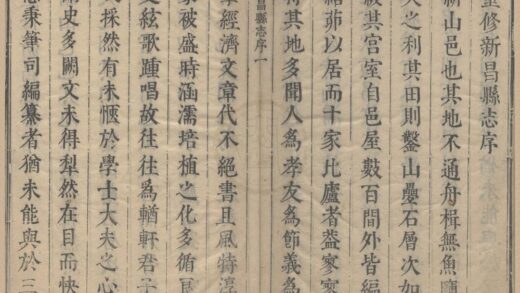 重修新昌縣志序
新山邑也其地不通舟楫無魚鹽
大之利其田則鑿山疊石層次如
級其宮室自邑屋數百間外皆編
結茆以居而十家比廬者葢寥寥
惟其地多聞人為孝友為節義為
昌縣志序 一
卓經濟文章代不絕書且風特淳
家被盛時涵濡培植之化多循良
之絃歌踵唱故往往為輶軒君子
采採然有未愜於學士大夫之心
爾史多闕文未得犁然在目而快
急秉筆司編纂者猶未能與於三